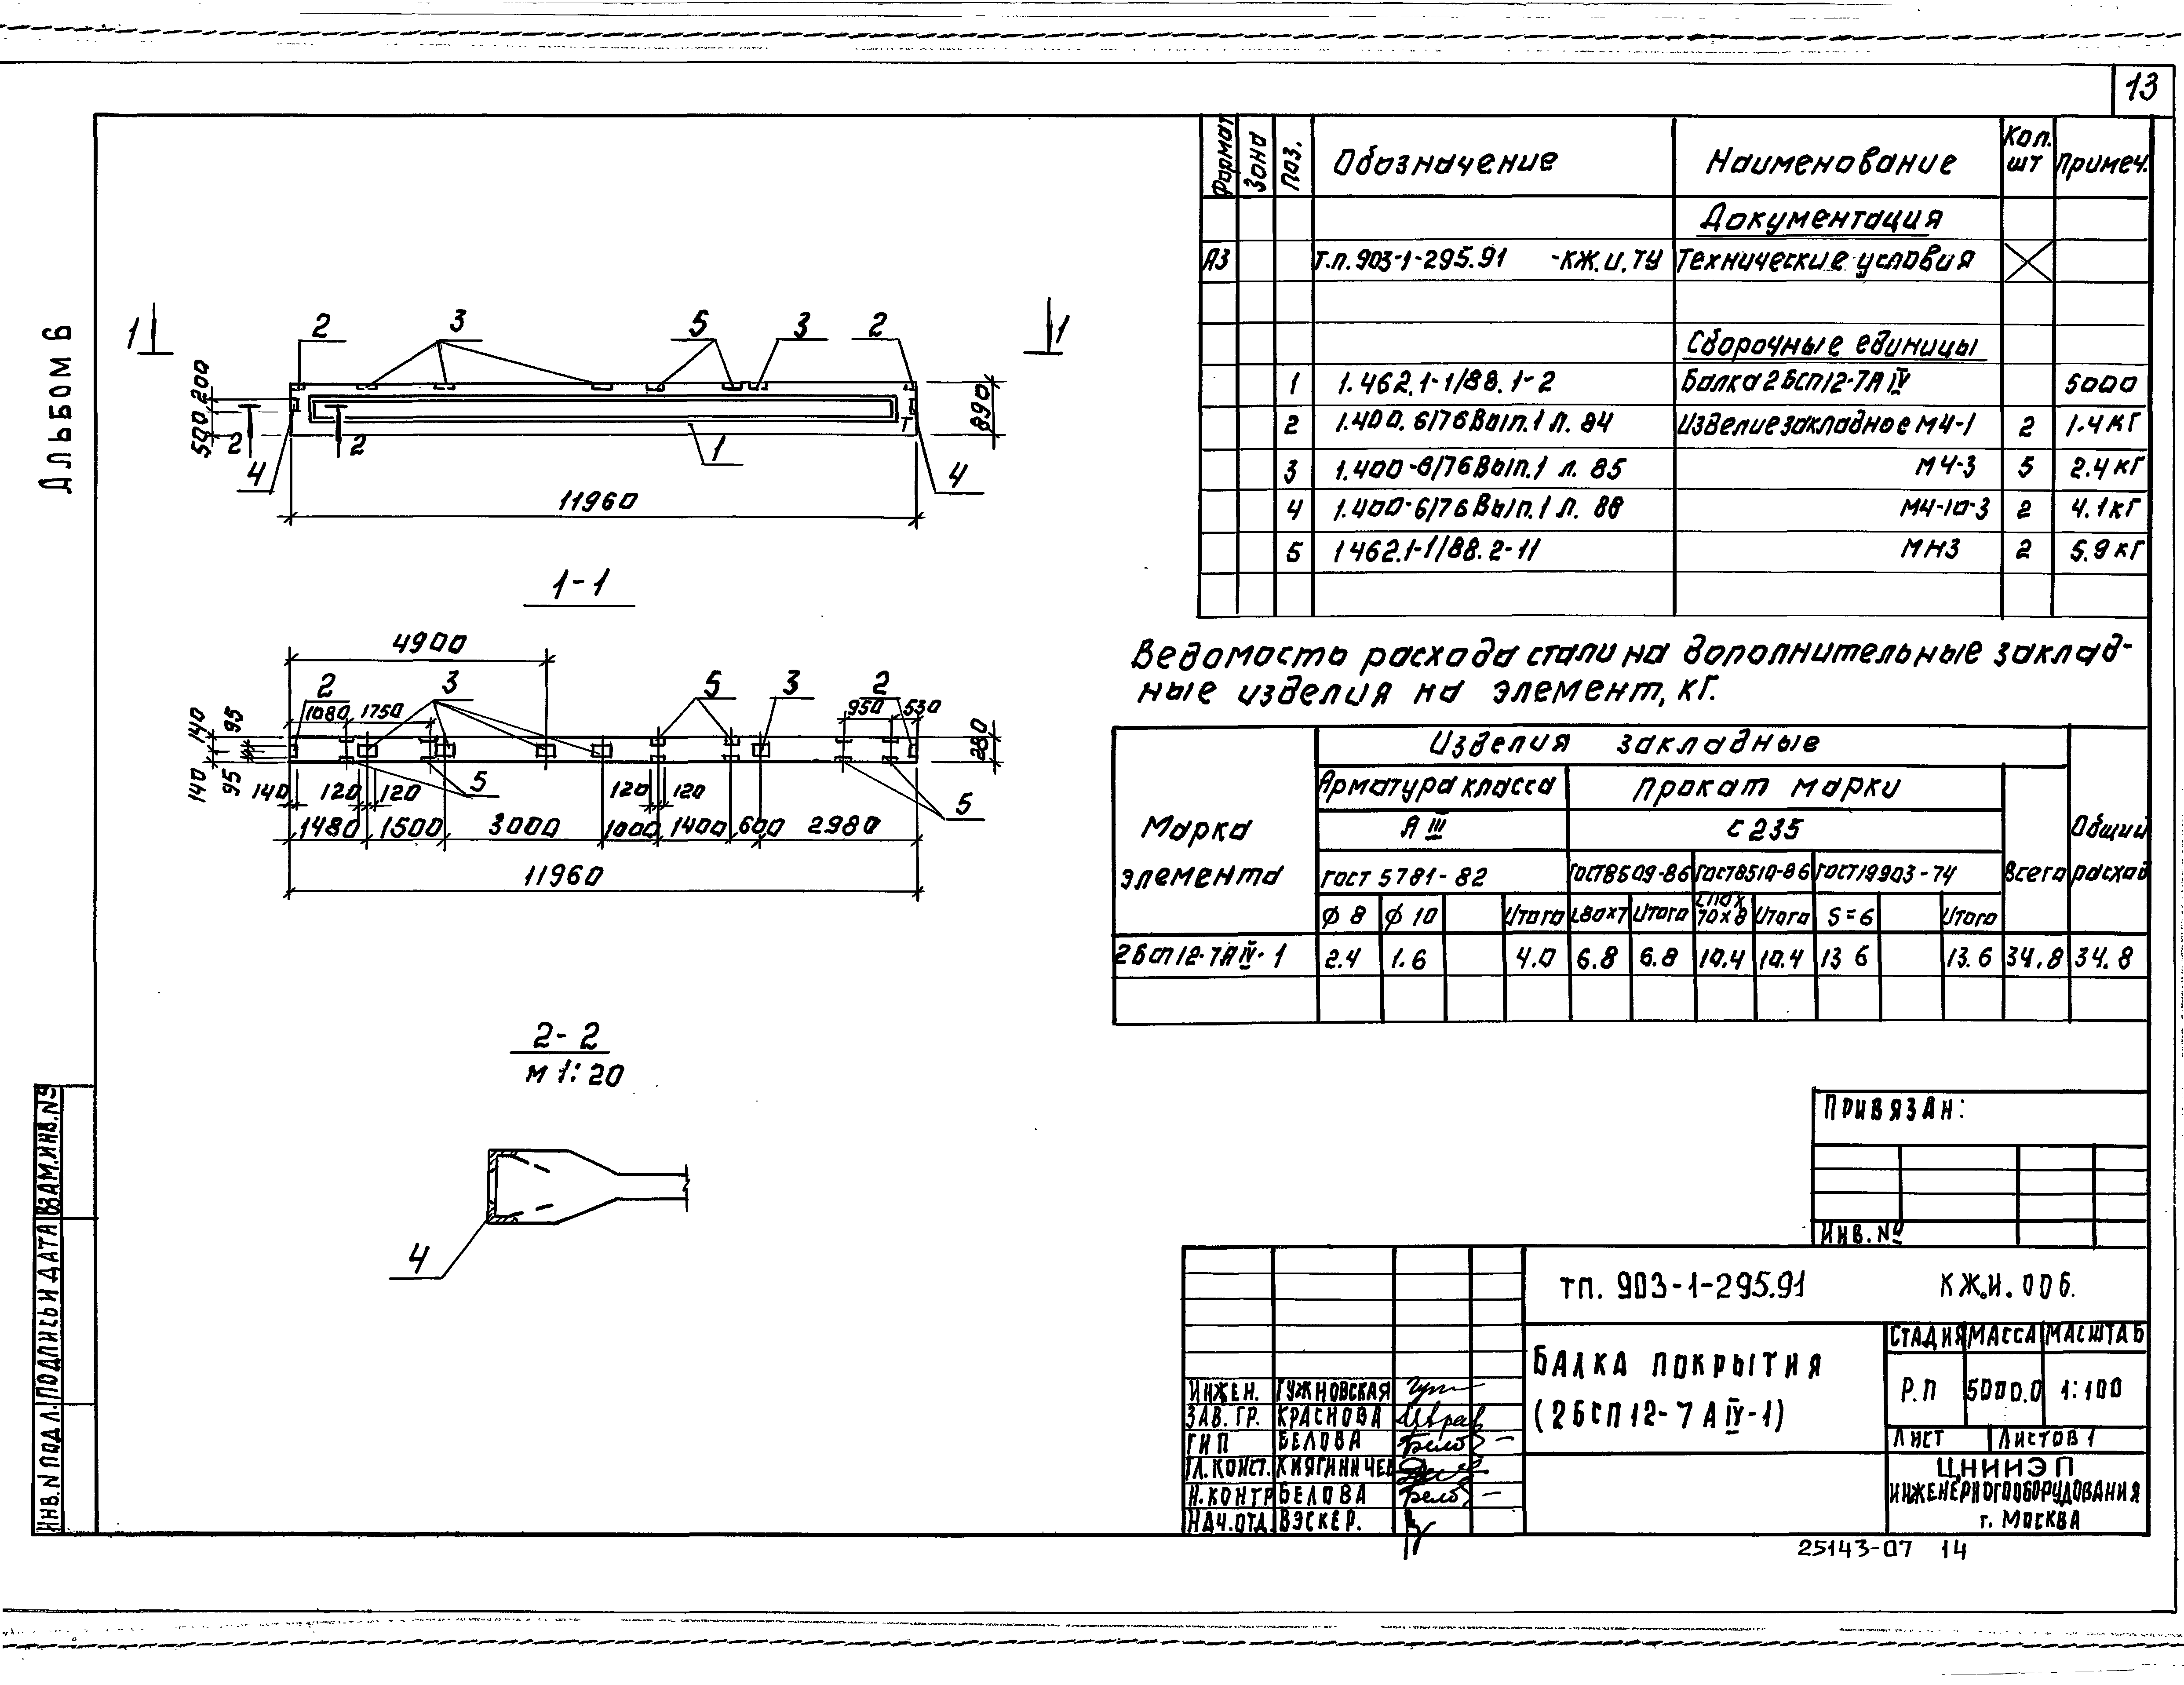 13
Альбом 6
Формат Зона Поз. Обозначение Наименование Кол. шт Примеч.
Документация
А3 Т.п. 903-1-295.91 -КЖ.И.ТУ Технические условия
Сборочные единицы
1 1.462.1-1/88.1-2 Балка 2БСП12-7АIV 5000
2 1.400.6/76 Вып.1 л. 84 Изделие закладное М4-1 2 1.4кг
3 1.400-6/76 Вып.1 л. 85 М4-3 5 2.4кг
4 1.400-6/76 Вып.1 л. 88 М4-10-3 2 4.1кг
5 1462.1-1/88.2-11 МН3 2 5.9кг
1 2 3 5 3 2 1
200
500
2 2
4 1 4
890
11960
1-1
4900
2 3 5 3 2
1080 1750 950 530
140 95
140 95
280
140 120 120 5 120 120 5
1480 1500 3000 1000 1400 600 2980
11960
2-2
м 1:20
4
Ведомость расхода стали на дополнительные заклад-
ные изделия на элемент, кг.
Марка элемента
Изделия закладные
Общий расход
Арматура класса Прокат марки Всего
А III С 235
ГОСТ 5781-82 ГОСТ8509-86 ГОСТ8510-86 ГОСТ19903-74
ϕ 8 ϕ 10 Итого L80х7 Итого L110х70х8 Итого S=6 Итого
2БСП12-7АIV-1 2.4 1.6 4.0 6.8 6.8 10.4 10.4 13 6 13.6 34.8 34.8
Привязан:
Инв. №
ТП. 903-1-295.91 КЖ.И.006.
Балка покрытия
(2БСП12-7АIV-1)
Стадия Масса Масштаб
Р.П 5000.0 1:100
Лист Листов 1
ЦНИИЭП
инженерного оборудования
г. Москва
Инжен. Гужновская
Зав. гр. Краснова
ГИП Белова
Гл. конст.
Н. контр Белова
Нач. отд. Вэскер.
Инв. N подл. Подпись и дата Взам. инв. №
25143-07 14